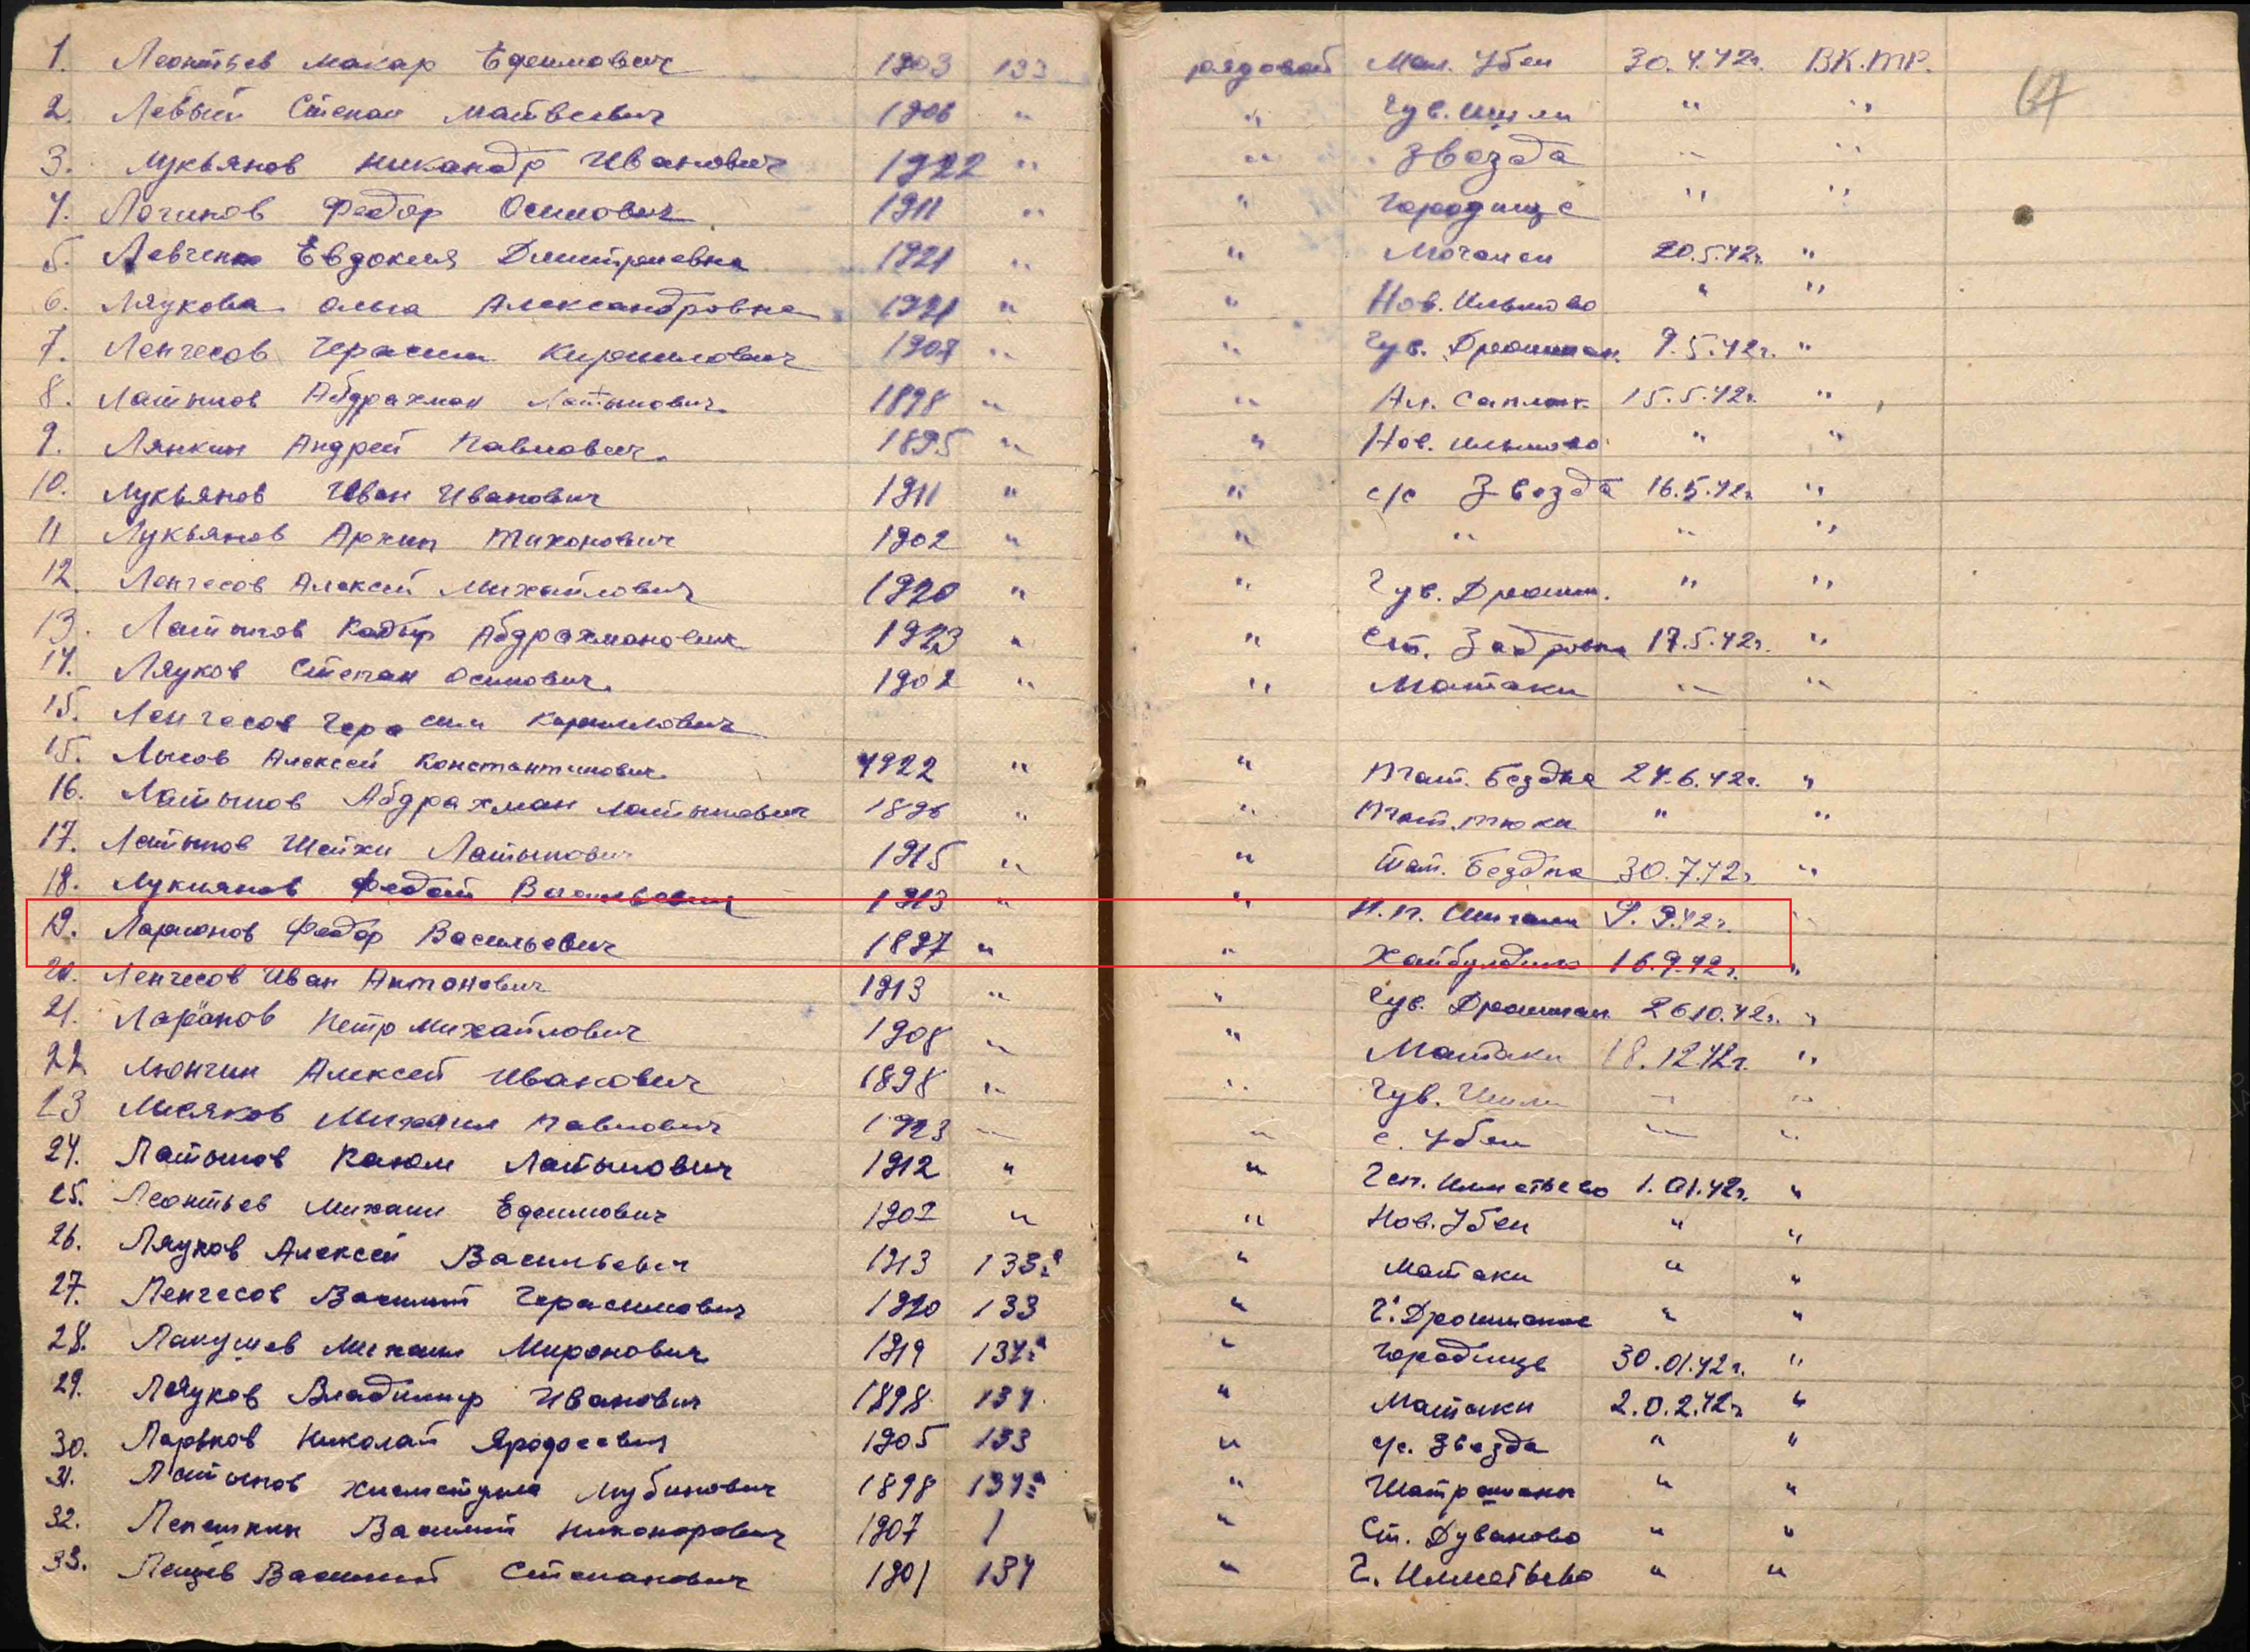 1. Леонтьев Макар Ефимович 1903 133 рядовой Мал. Убеи 30.4.42г. ВК.ТР. 67
2. Левый Степан Матвеевич 1906 " " Чув. Ишли " "
3. Лукьянов Никандр Иванович 1922 " " Звезда " "
4. Логинов Федор Осипович 1911 " " Городище " "
5. Левченко Евдокия Дмитриевна 1921 " " Мочалеи 20.5.42г. "
6. Ляукова Ольга Александровна 1921 " " Нов. Ильмово " "
7. Ленчесов Герасим Кириллович 1907 " " Чув. Дрожжан. 9.5.42г. "
8. Латыпов Абдрахман Латыпович 1898 " " Ал. Саплык. 15.5.42г. "
9. Лянкин Андрей Павлович 1895 " " Нов. Ильмово " "
10. Лукьянов Иван Иванович 1911 " " с/с Звезда 16.5.42г. "
11 Лукьянов Архип Тихонович 1902 " " " " "
12. Ленчесов Алексей Михайлович 1920 " " Чув. Дрожж. " "
13. Латыпов Кадыр Абдрахманович 1923 " " Ст. Задровка 17.5.42г. "
14. Ляуков Степан Осипович 1902 " " Матаки " "
15. Ленчесов Герасим Кириллович
15. Лысов Алексей Константинович 1922 " " Тат. Бездна 24.6.42г. "
16. Латыпов Абдрахман Латыпович 1896 " " Тат. Тюки " "
17. Латыпов Шейхи Латыпович 1915 " " Тат. Бездна 30.7.42г. "
18. Лукиянов Федот Васильевич 1913 " " Н.п. 9.9.42г. "
19. Ларионов Федор Васильевич 1897 " " Хайбулдино 16.9.42г. "
20. Ленчесов Иван Антонович 1913 " " Чув. Дрожжан. 26.10.42г. "
21. Ларионов Петр Михайлович 1908 " " Матаки 18.12.42г. "
22 Люнгин Алексей Иванович 1898 " " Чув. Ишли " "
23 Михаил Павлович 1923 " " с. Убеи " "
24. Латыпов Каюм Латыпович 1912 " " Чеп. Ильметьево 1.01.42г. "
25. Леонтьев Михаил Ефимович 1902 " " Нов. Убеи " "
26. Ляуков Алексей Васильевич 1913 133а " Матаки " "
27. Ленчесов Василий Герасимович 1920 133 " Ч. Дрожжаное " "
28. Лакушев Михаил Миронович 1919 134а " Городище 30.01.42г. "
29. Ляуков Владимир Иванович 1898 134 " Матаки 2.0.2.42г. "
30. Ларьков Николай 1905 133 " с/с. Звезда " "
31. Латыпов Хисметулла Мубинович 1898 134а " Шатрашаны " "
32. Лепешкин Василий Никонорович 1907 / " Ст. Дуваново " "
33. Лещев Василий Степанович 1901 134 " Ч. Ильметьево " "